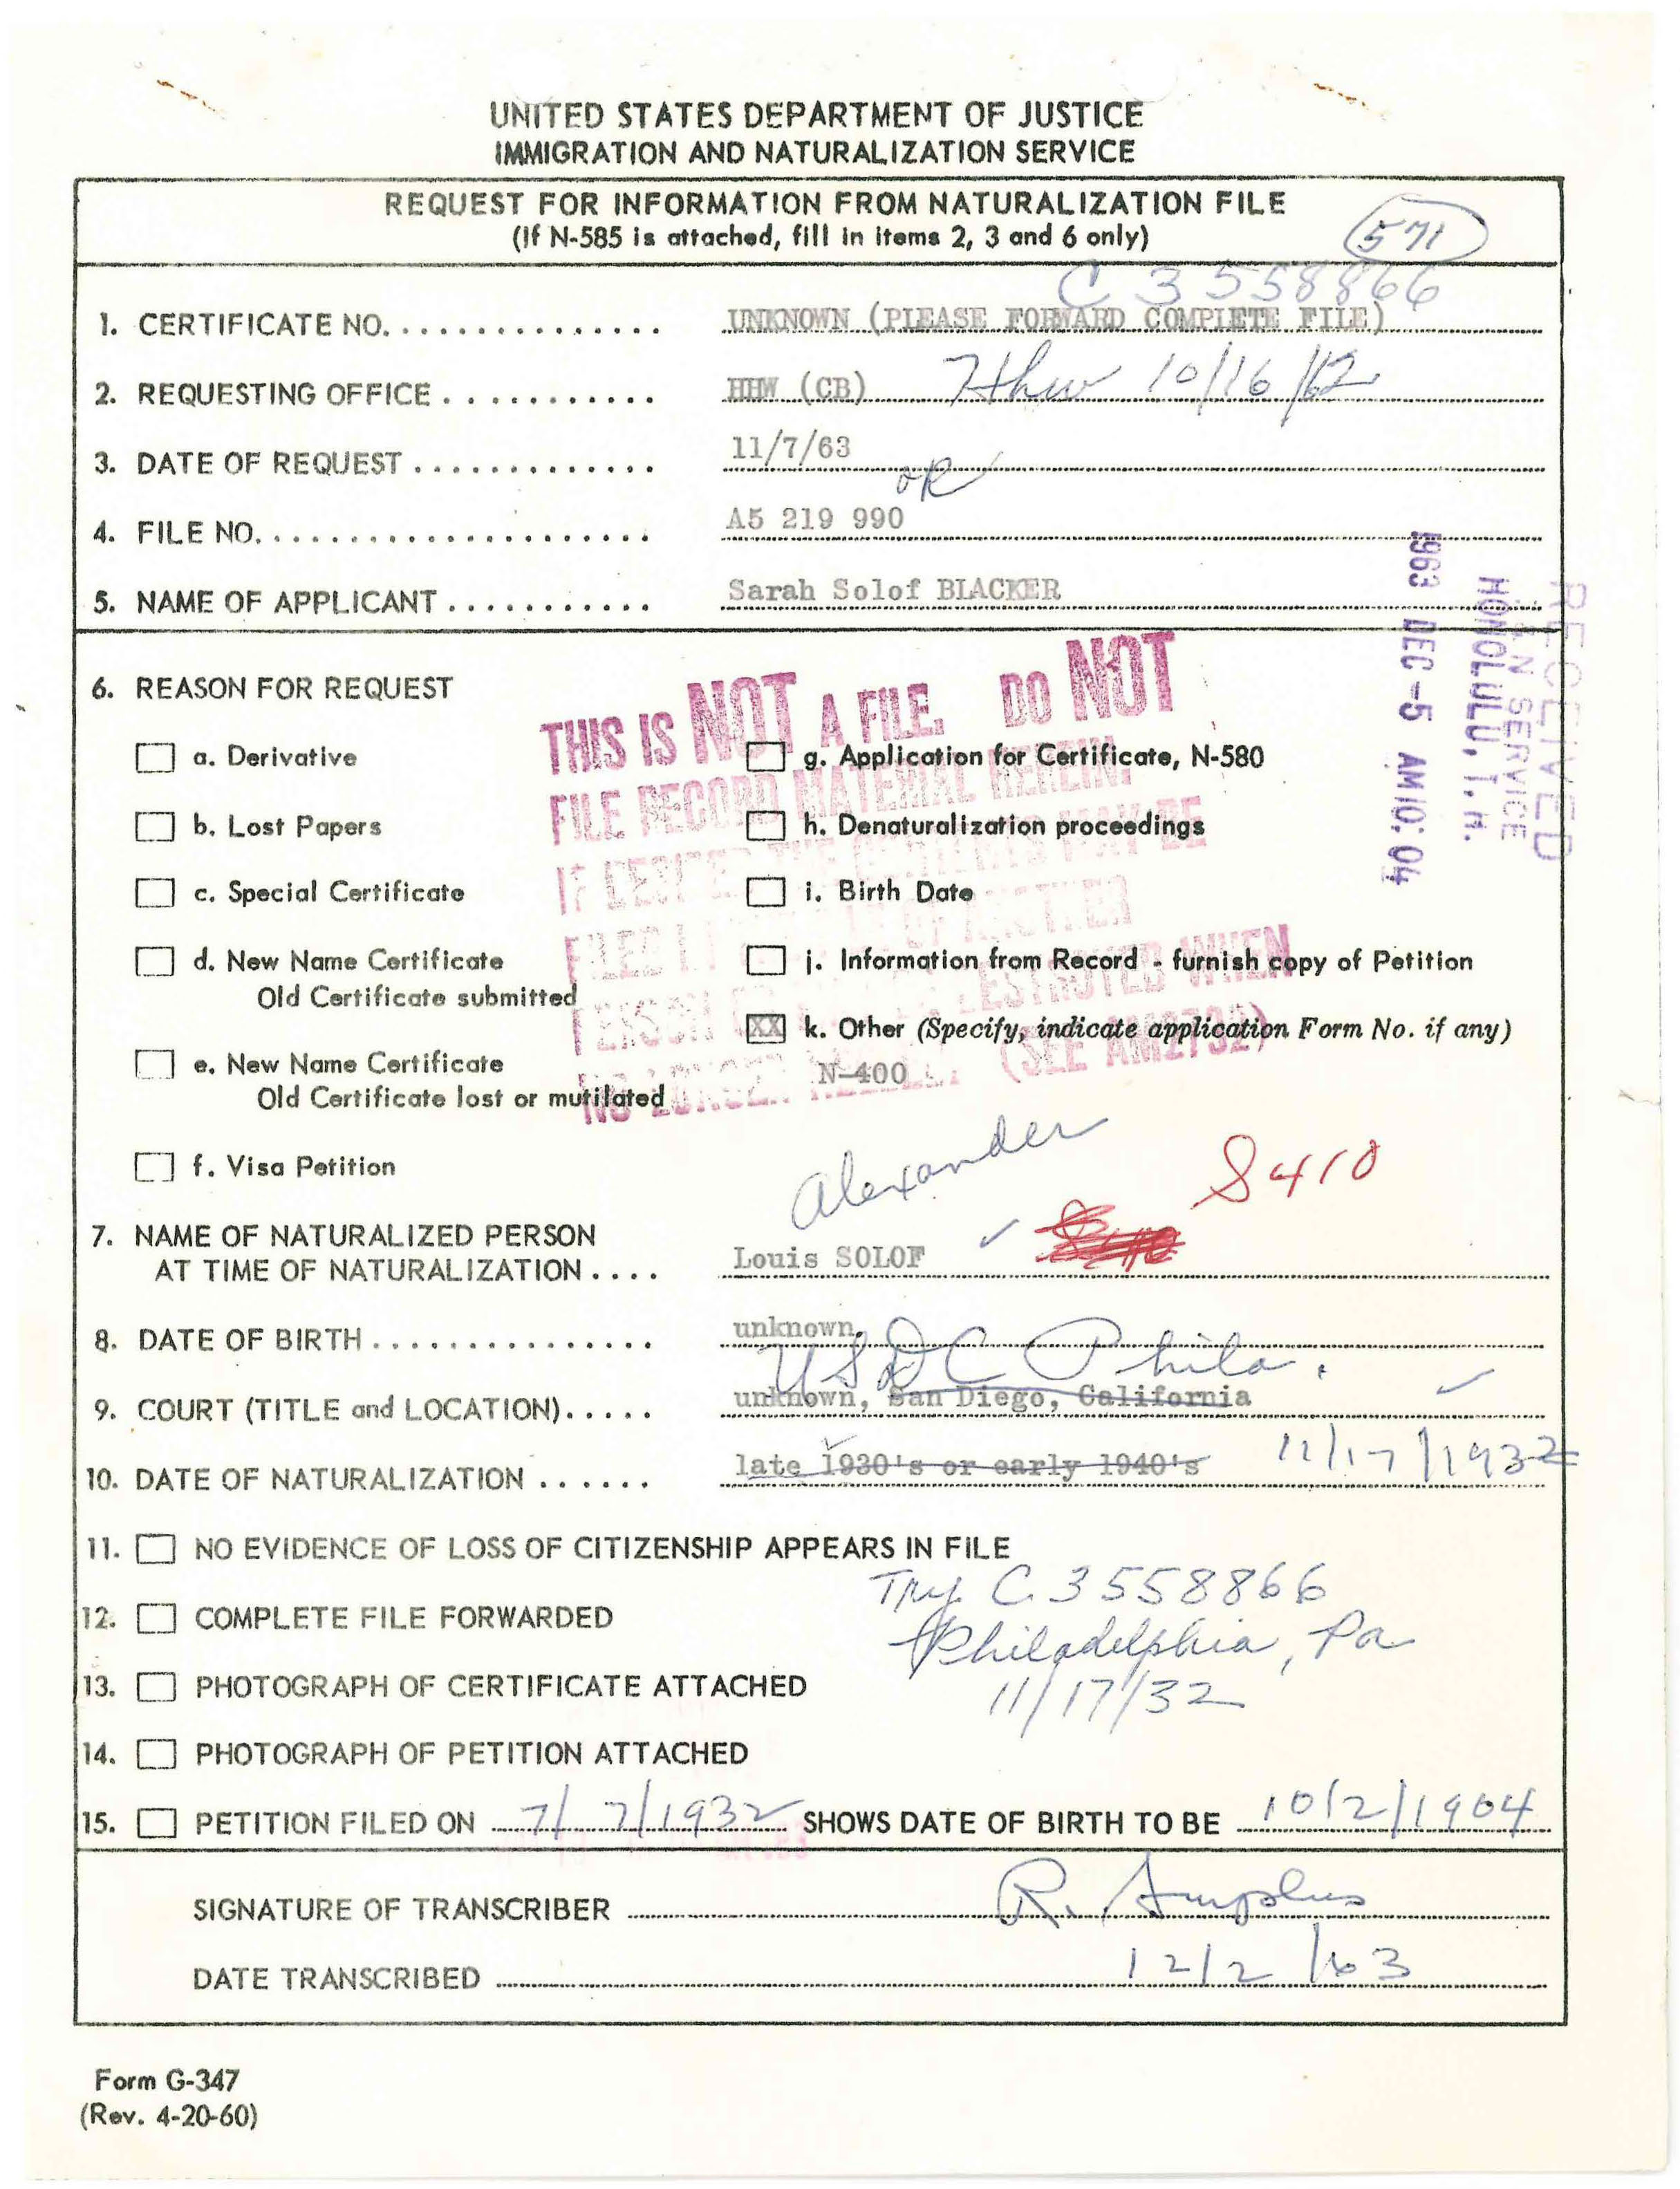 UNITED STATES DEPARTMENT OF JUSTICE
IMMIGRATION AND NATURALIZATION SERVICE
REQUEST FOR INFORMATION FROM NATURALIZATION FILE
(If N-585 is attached, fill in items 2, 3 and 6 only)
571
C 3558866
1. CERTIFICATE NO. UNKNOWN (PLEASE FORWARD COMPLETE FILE)
2. REQUESTING OFFICE HHW (CB) 10/16/62
3. DATE OF REQUEST 11/7/63
OR
4. FILE NO. A5 219 990
5. NAME OF APPLICANT Sarah Solof BLACKER
RECEIVED
I & N SERVICE
HONOLULU, T. H.
1963 DEC -5 AM 10:04
6. REASON FOR REQUEST
THIS IS NOT A FILE. DO NOT
FILE RECORD MATERIAL HEREIN.
a. Derivative
b. Lost Papers
c. Special Certificate
d. New Name Certificate
Old Certificate submitted
e. New Name Certificate
Old Certificate lost or mutilated
f. Visa Petition
g. Application for Certificate, N-580
h. Denaturalization proceedings
i. Birth Date
j. Information from Record - furnish copy of Petition
XX k. Other (Specify, indicate application Form No. if any)
N-400
DESTROYED WHEN
NO LONGER NEEDED. (SEE AM2732)
Alexander
8410
7. NAME OF NATURALIZED PERSON
AT TIME OF NATURALIZATION Louis SOLOF
8. DATE OF BIRTH unknown
USDC Phila.
9. COURT (TITLE and LOCATION) unknown, San Diego, California
10. DATE OF NATURALIZATION late 1930's or early 1940's 11/17/1932
11. NO EVIDENCE OF LOSS OF CITIZENSHIP APPEARS IN FILE
Try C.3558866
12. COMPLETE FILE FORWARDED
Philadelphia, Pa
13. PHOTOGRAPH OF CERTIFICATE ATTACHED
11/17/32
14. PHOTOGRAPH OF PETITION ATTACHED
15. PETITION FILED ON 7/7/1932 SHOWS DATE OF BIRTH TO BE 10/2/1904
SIGNATURE OF TRANSCRIBER R.
DATE TRANSCRIBED 12/2/63
Form G-347
(Rev. 4-20-60)